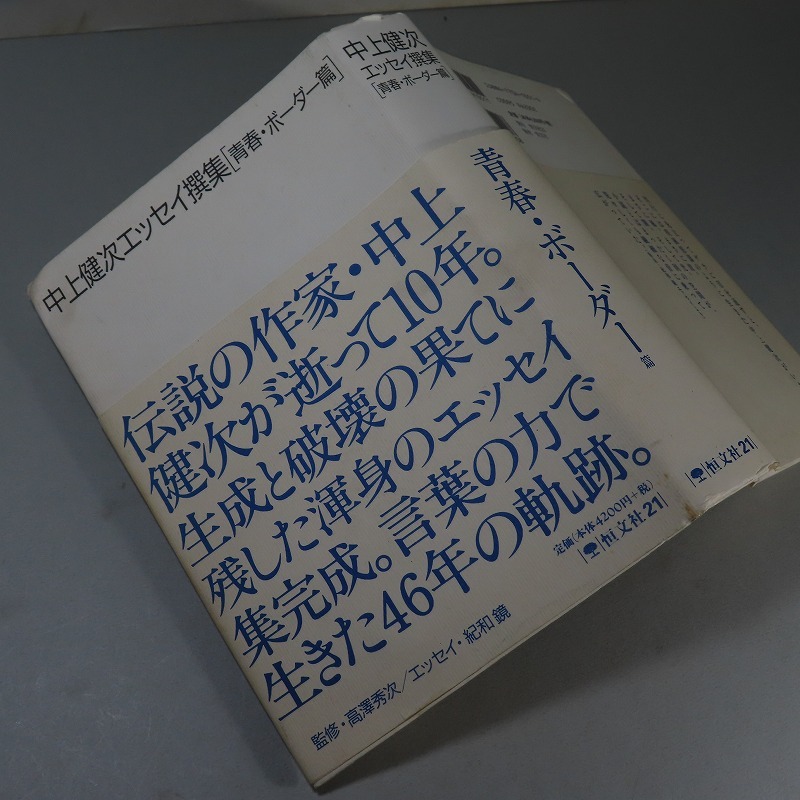 中上健次エッセイ撰集[青春・ボーダー篇]
伝説の作家・中上
健次が逝って10年。
生成と破壊の果てに
残した渾身のエッセイ
集完成。言葉の力で
生きた46年の軌跡。
監修・高澤秀次/エッセイ・紀和鏡
定価(本体4200円+税)
恒文社21
中上健次
エッセイ撰集
[青春・ボーダー篇]
青春・ボーダー篇
恒文社21